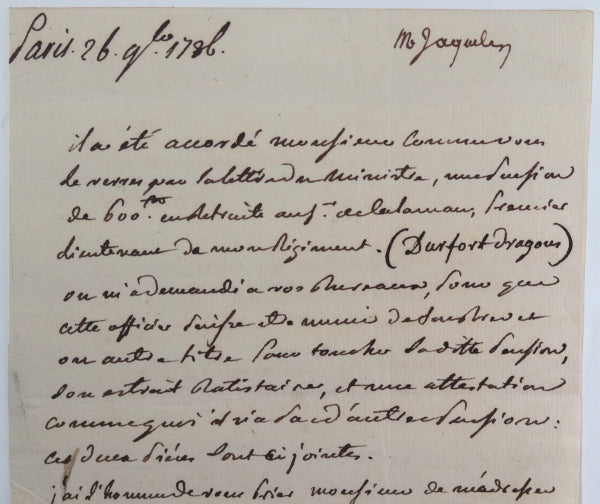 Paris. 26. 9bre 1786.
M Jaquele
il a été accordé monsieur comme vous
le verres par la lettre du ministre, une pension
de 600.lt en Retraite au Sr. de lalaman, premier
lieutenant de mon Régiment. (Durfort dragons)
on m'a demandé a vos bureaux, pour que
cette officier puisse etre muni de son brevet
ou autre titre pour toucher la ditte pension,
son extrait Batistaire, et une attestation
comme quoi il n'a pas d'autre pension:
ces deux pièces sont ci jointes.
j'ai l'honneur de vous prier monsieur de